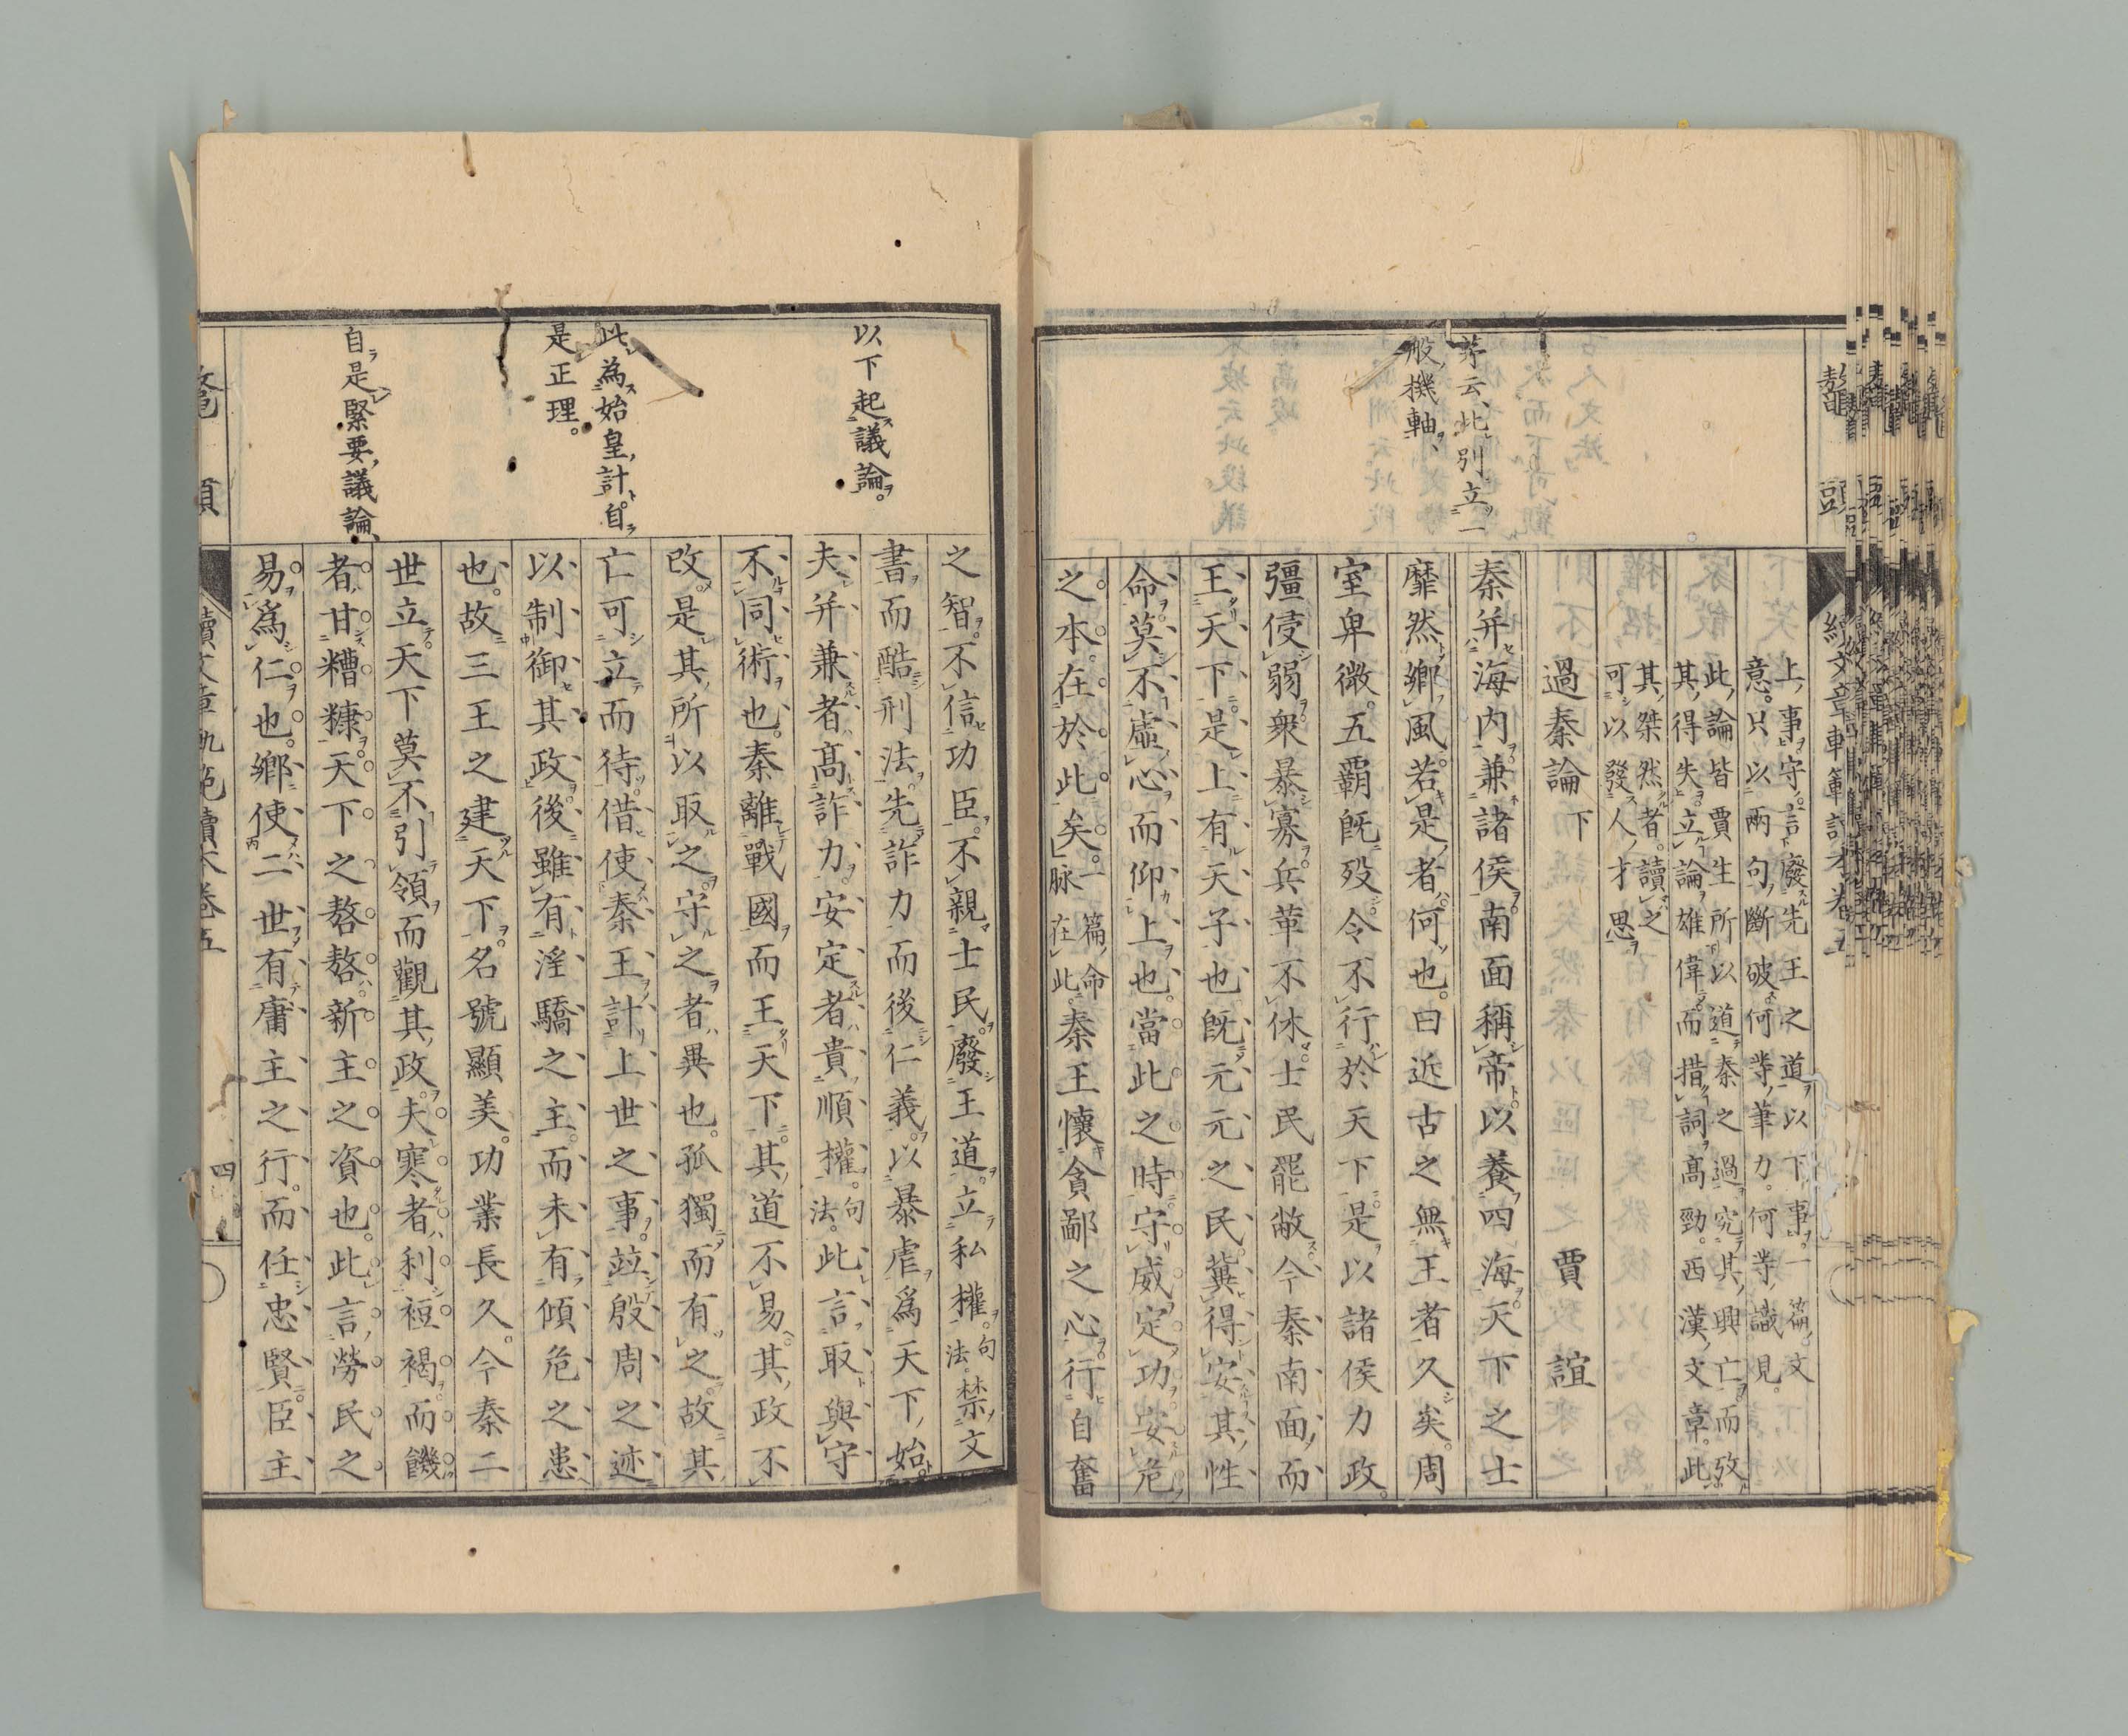 鼇頭
續文章軌範讀本卷五
茅云、此別立一
般機軸、
上事守。言廢先王之道以下事。一篇文
意。只以兩句斷破。何等筆力。何等識見。
此論皆賈生所以道秦之過。究其興亡。而攷
其得失。立論雄偉。而措詞高勁。西漢文章。此
其桀然者。讀之
可以發人才思。
過秦論下　賈誼
秦并海内。兼諸侯。南面稱帝。以養四海。天下之士
靡然鄉風。若是者何也。曰近古之無王者久矣。周
室卑微。五霸既歿。令不行於天下。是以諸侯力政。
彊侵弱。衆暴寡。兵革不休。士民罷敝。今秦南面。而
王天下。是上有天子也。既元元之民。冀得安其性
命。莫不虛心而仰上也。當此之時。守威定功。安危
之本。在於此矣。一篇命脉在此。秦王懷貪鄙之心。行自奮
以下起議論。
此為始皇計。自
是正理。
自是緊要議論、
之智。不信功臣。不親士民。廢王道。立私權。句法。禁文
書。而酷刑法。先詐力而後仁義。以暴虐爲天下始。
夫并兼者。高詐力。安定者。貴順權。句法。此言取與守
不同術也。秦離戰國。而王天下。其道不易。其政不
改。是其所以取之守之者異也。孤獨而有之。故其
亡可立而待。借使秦王計上世之事。竝殷周之迹。
以制御其政。後雖有淫驕之主。而未有傾危之患
也。故三王之建天下。名號顯美。功業長久。今秦二
世立。天下莫不引領而觀其政。夫寒者利裋褐。而饑
者甘糟糠。天下之嗸嗸。新主之資也。此言勞民之
易爲仁也。鄉使二世有庸主之行。而任忠賢。臣主
鼇頭
續文章軌範讀本卷五
四